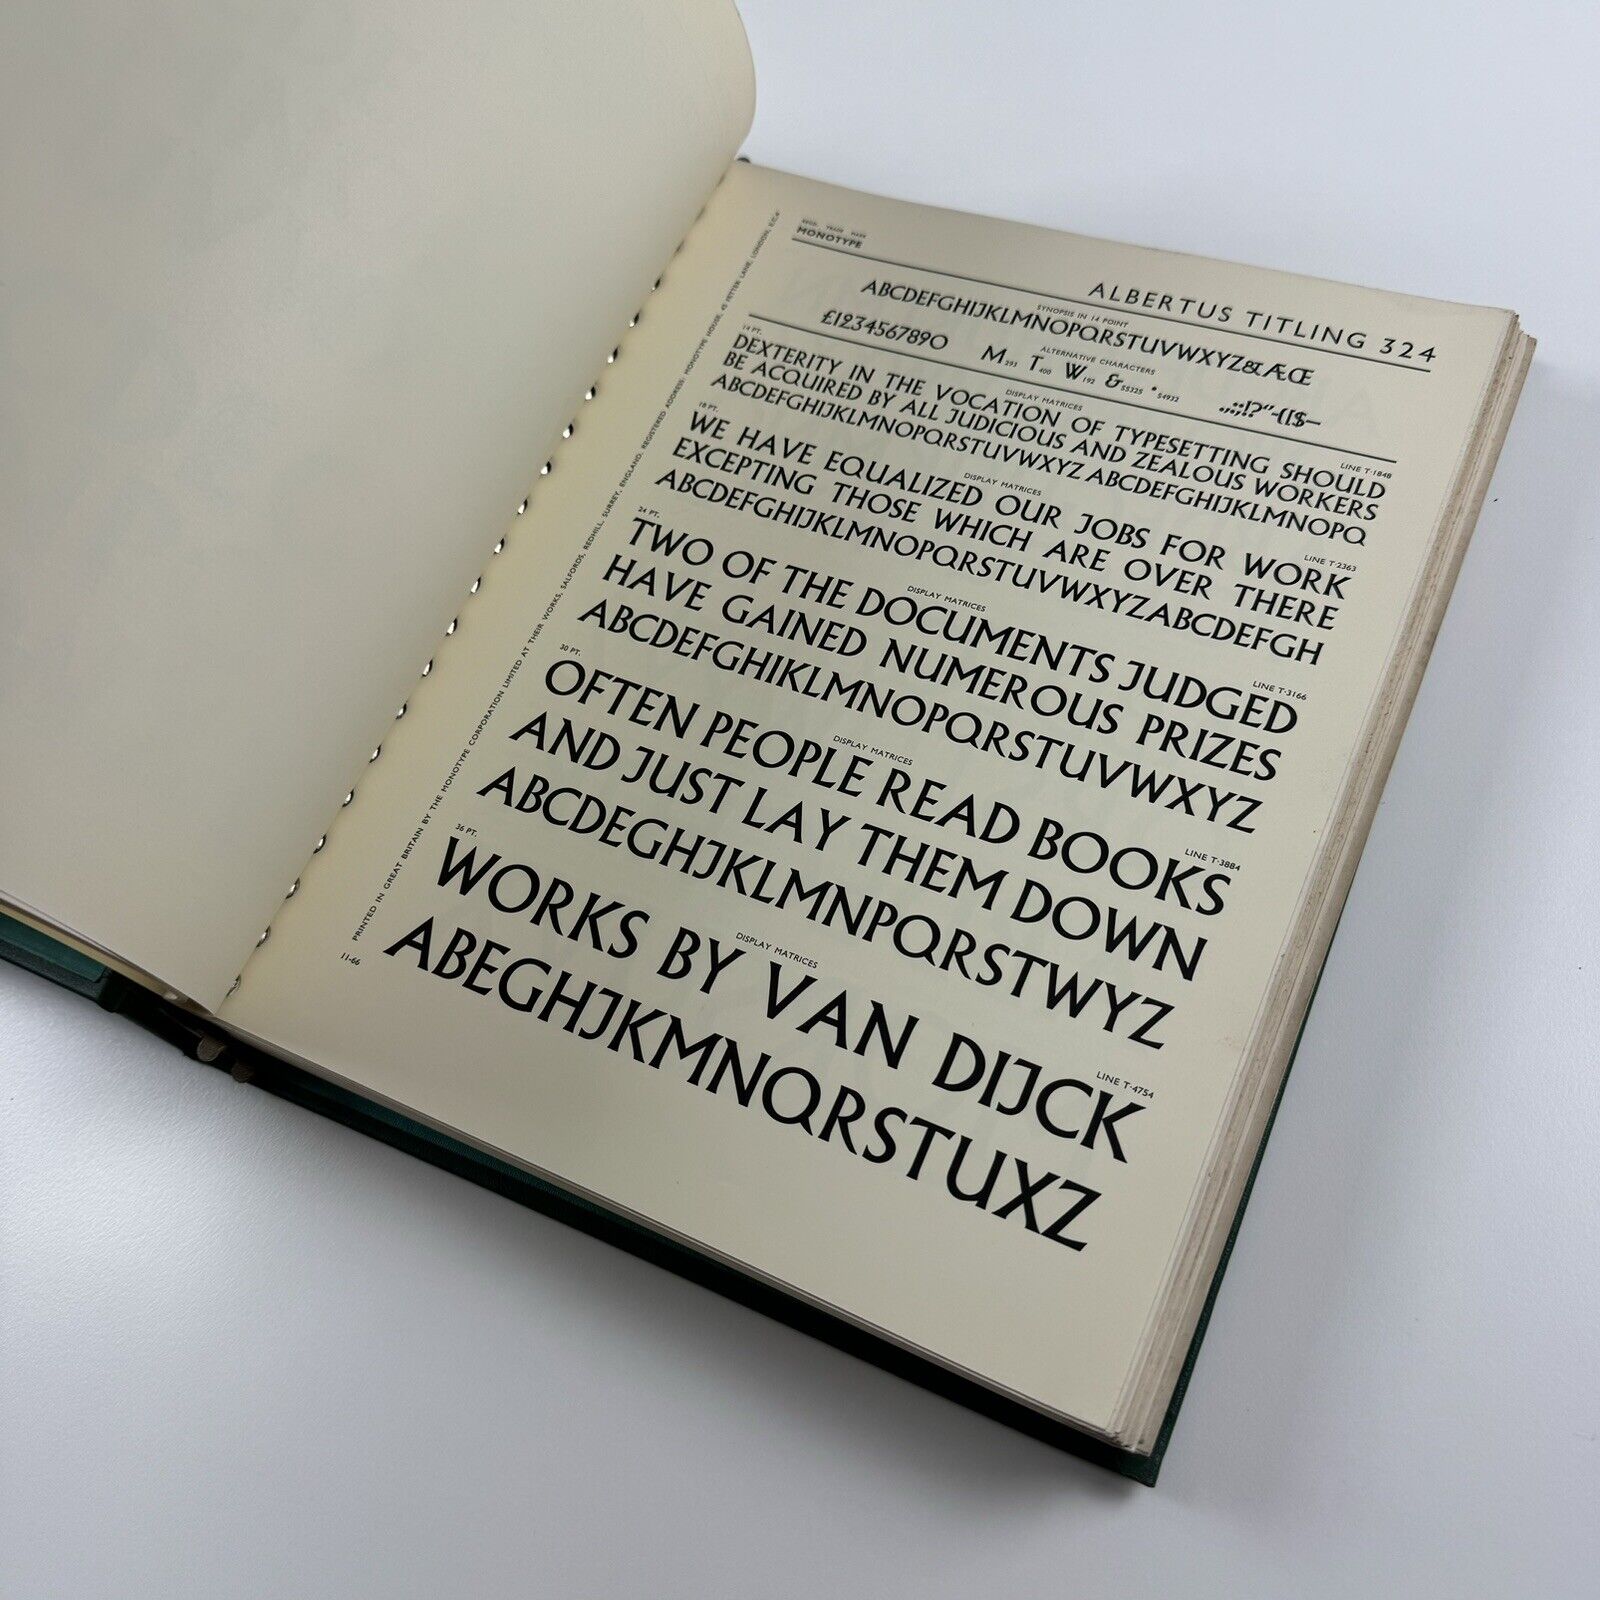 REGD. TRADE MARK
MONOTYPE
ALBERTUS TITLING 324
SYNOPSIS IN 14 POINT
ABCDEFGHIJKLMNOPQRSTUVWXYZ&ÆŒ
ALTERNATIVE CHARACTERS
£1234567890 M293 T400 W192 &S5325 *S4932 .,:;!?''-([$—
14 PT. DISPLAY MATRICES LINE T·1848
DEXTERITY IN THE VOCATION OF TYPESETTING SHOULD
BE ACQUIRED BY ALL JUDICIOUS AND ZEALOUS WORKERS
ABCDEFGHIJKLMNOPQRSTUVWXYZ ABCDEFGHIJKLMNOPQ
18 PT. DISPLAY MATRICES LINE T·2363
WE HAVE EQUALIZED OUR JOBS FOR WORK
EXCEPTING THOSE WHICH ARE OVER THERE
ABCDEFGHIJKLMNOPQRSTUVWXYZABCDEFGH
24 PT. DISPLAY MATRICES LINE T·3166
TWO OF THE DOCUMENTS JUDGED
HAVE GAINED NUMEROUS PRIZES
ABCDEFGHIKLMNOPQRSTUVWXYZ
30 PT. DISPLAY MATRICES LINE T·3884
OFTEN PEOPLE READ BOOKS
AND JUST LAY THEM DOWN
ABCDEGHJKLMNPQRSTWYZ
36 PT. DISPLAY MATRICES LINE T·4754
WORKS BY VAN DIJCK
ABEGHJKMNQRSTUXZ
11-66
PRINTED IN GREAT BRITAIN BY THE MONOTYPE CORPORATION LIMITED AT THEIR WORKS, SALFORDS, REDHILL, SURREY, ENGLAND. REGISTERED ADDRESS: MONOTYPE HOUSE, 43 FETTER LANE, LONDON, E.C.4